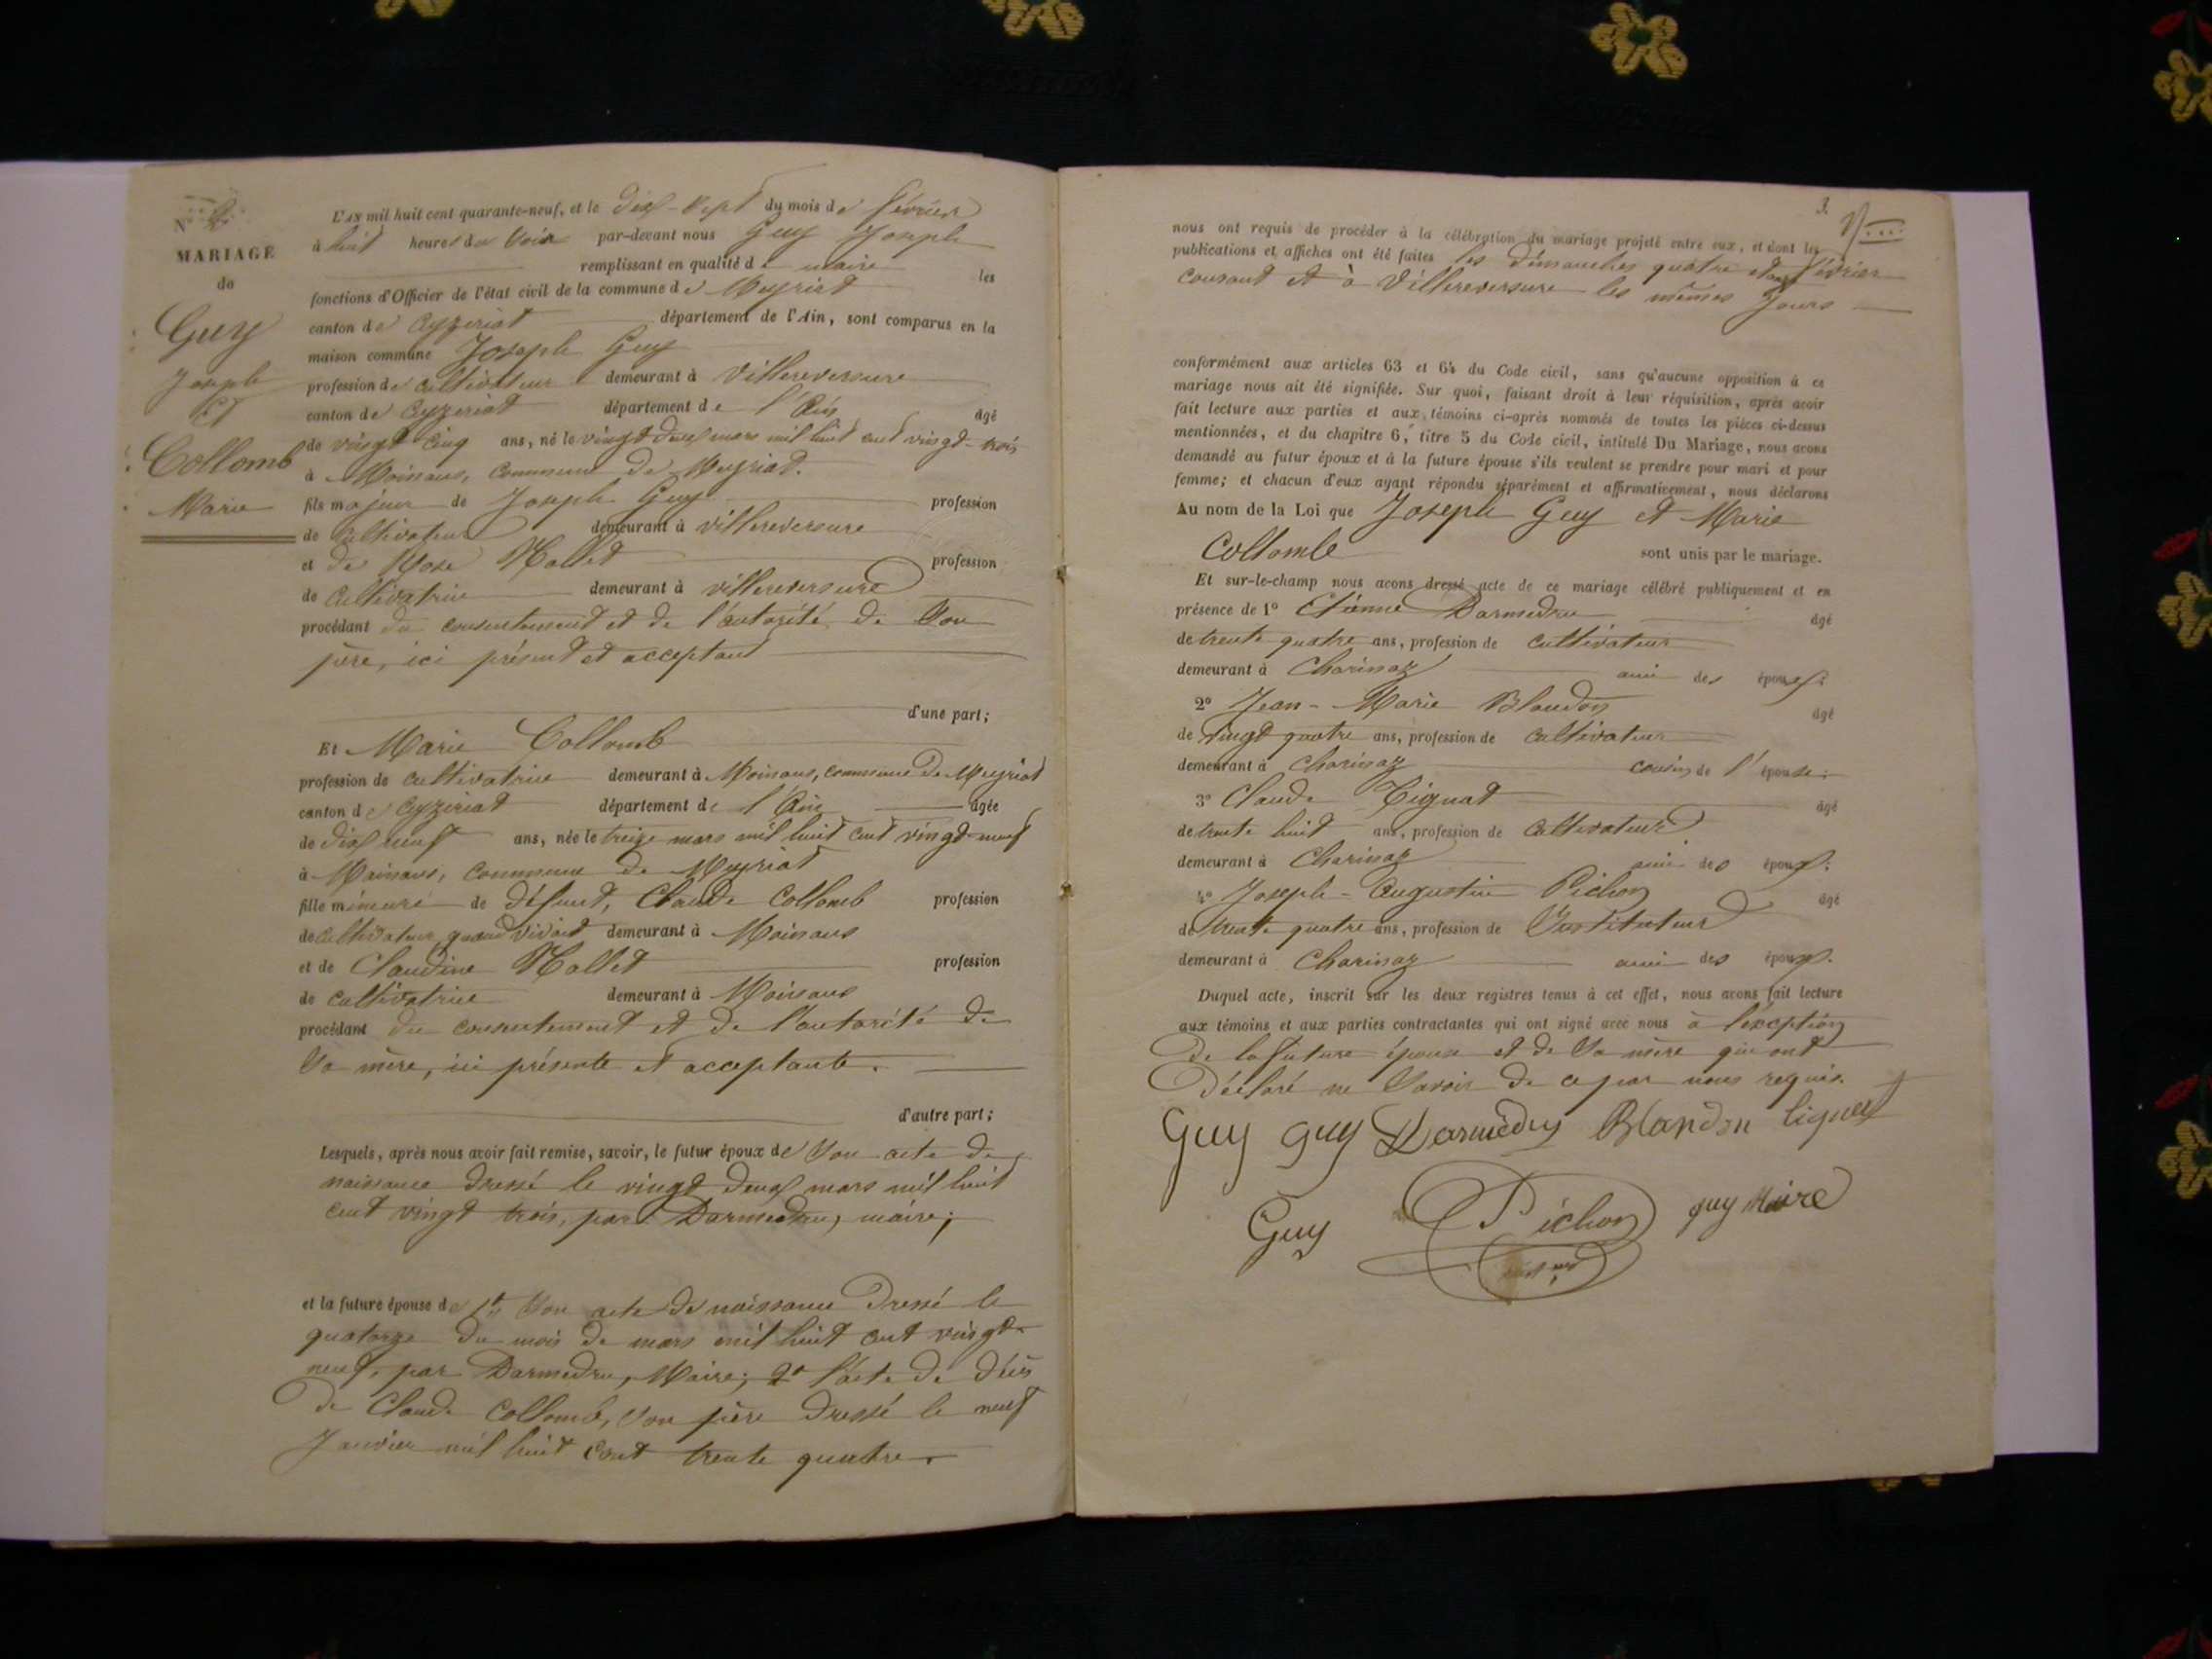 N° 2
MARIAGE
de
Guy
Joseph
Et
Collomb
Marie
L'AN mil huit cent quarante-neuf, et le dix-sept du mois de février
à huit heures du soir par-devant nous Guy Joseph
remplissant en qualité de maire les
fonctions d'Officier de l'état civil de la commune de Meyriat
canton de Ceyzeriat département de l'Ain, sont comparus en la
maison commune Joseph Guy
profession de cultivateur demeurant à Villereversure
canton de Ceyzeriat département de l'Ain âgé
de vingt cinq ans, né le vingt deux mars mil huit cent vingt-trois
à Moinans, commune de Meyriat.
fils majeur de Joseph Guy profession
de cultivateur demeurant à villereversure
et de Rose Mallet profession
de cultivatrice demeurant à villereversure
procédant du consentement et de l'autorité de son
père, ici présent et acceptant
d'une part;
Et Marie Collomb
profession de cultivatrice demeurant à Moinans, commune de Meyriat
canton de Ceyzeriat département de l'Ain âgée
de dix neuf ans, née le treize mars mil huit cent vingt-neuf
à Moinans, commune de Meyriat
fille mineure de défunt, Claude Collomb profession
de cultivateur quand vivait demeurant à Moinans
et de Claudine Mallet profession
de cultivatrice demeurant à Moinans
procédant du consentement et de l'autorité de
sa mère, ici présente et acceptante.
d'autre part;
Lesquels, après nous avoir fait remise, savoir, le futur époux de son acte de
naissance dressé le vingt deux mars mil huit
cent vingt trois, par Darmedru, maire;
et la future épouse de 1° son acte de naissance dressé le
quatorze du mois de mars mil huit cent vingt-
neuf, par Darmedru, Maire; 2° l'acte de décès
de Claude Collomb, son père dressé le neuf
Janvier mil huit cent trente quatre.
3.
nous ont requis de procéder à la célébration du mariage projeté entre eux, et dont les
publications et affiches ont été faites les dimanches quatre et onze février
courant et à Villereversure les mêmes jours
conformément aux articles 63 et 64 du Code civil, sans qu'aucune opposition à ce
mariage nous ait été signifiée. Sur quoi, faisant droit à leur réquisition, après avoir
fait lecture aux parties et aux témoins ci-après nommés de toutes les pièces ci-dessus
mentionnées, et du chapitre 6, titre 5 du Code civil, intitulé Du Mariage, nous avons
demandé au futur époux et à la future épouse s'ils veulent se prendre pour mari et pour
femme; et chacun d'eux ayant répondu séparément et affirmativement, nous déclarons
Au nom de la Loi que Joseph Guy et Marie
Collomb sont unis par le mariage.
Et sur-le-champ nous avons dressé acte de ce mariage célébré publiquement et en
présence de 1° Etienne Darmedru âgé
de trente quatre ans, profession de cultivateur
demeurant à Charinaz ami des époux.
2° Jean-Marie Blandon âgé
de vingt quatre ans, profession de cultivateur
demeurant à Charinaz cousin de l'épouse.
3° Claude Tignat âgé
de trente huit ans, profession de cultivateur
demeurant à Charinaz ami des époux.
4° Joseph-Augustin Pichon âgé
de trente quatre ans, profession de Instituteur
demeurant à Charinaz ami des époux.
Duquel acte, inscrit sur les deux registres tenus à cet effet, nous avons fait lecture
aux témoins et aux parties contractantes qui ont signé avec nous à l'exception
de la future épouse et de sa mère qui ont
déclaré ne savoir de ce par nous requis.
Guy guy Darmedru Blandon tignat
Guy Pichon guy Maire